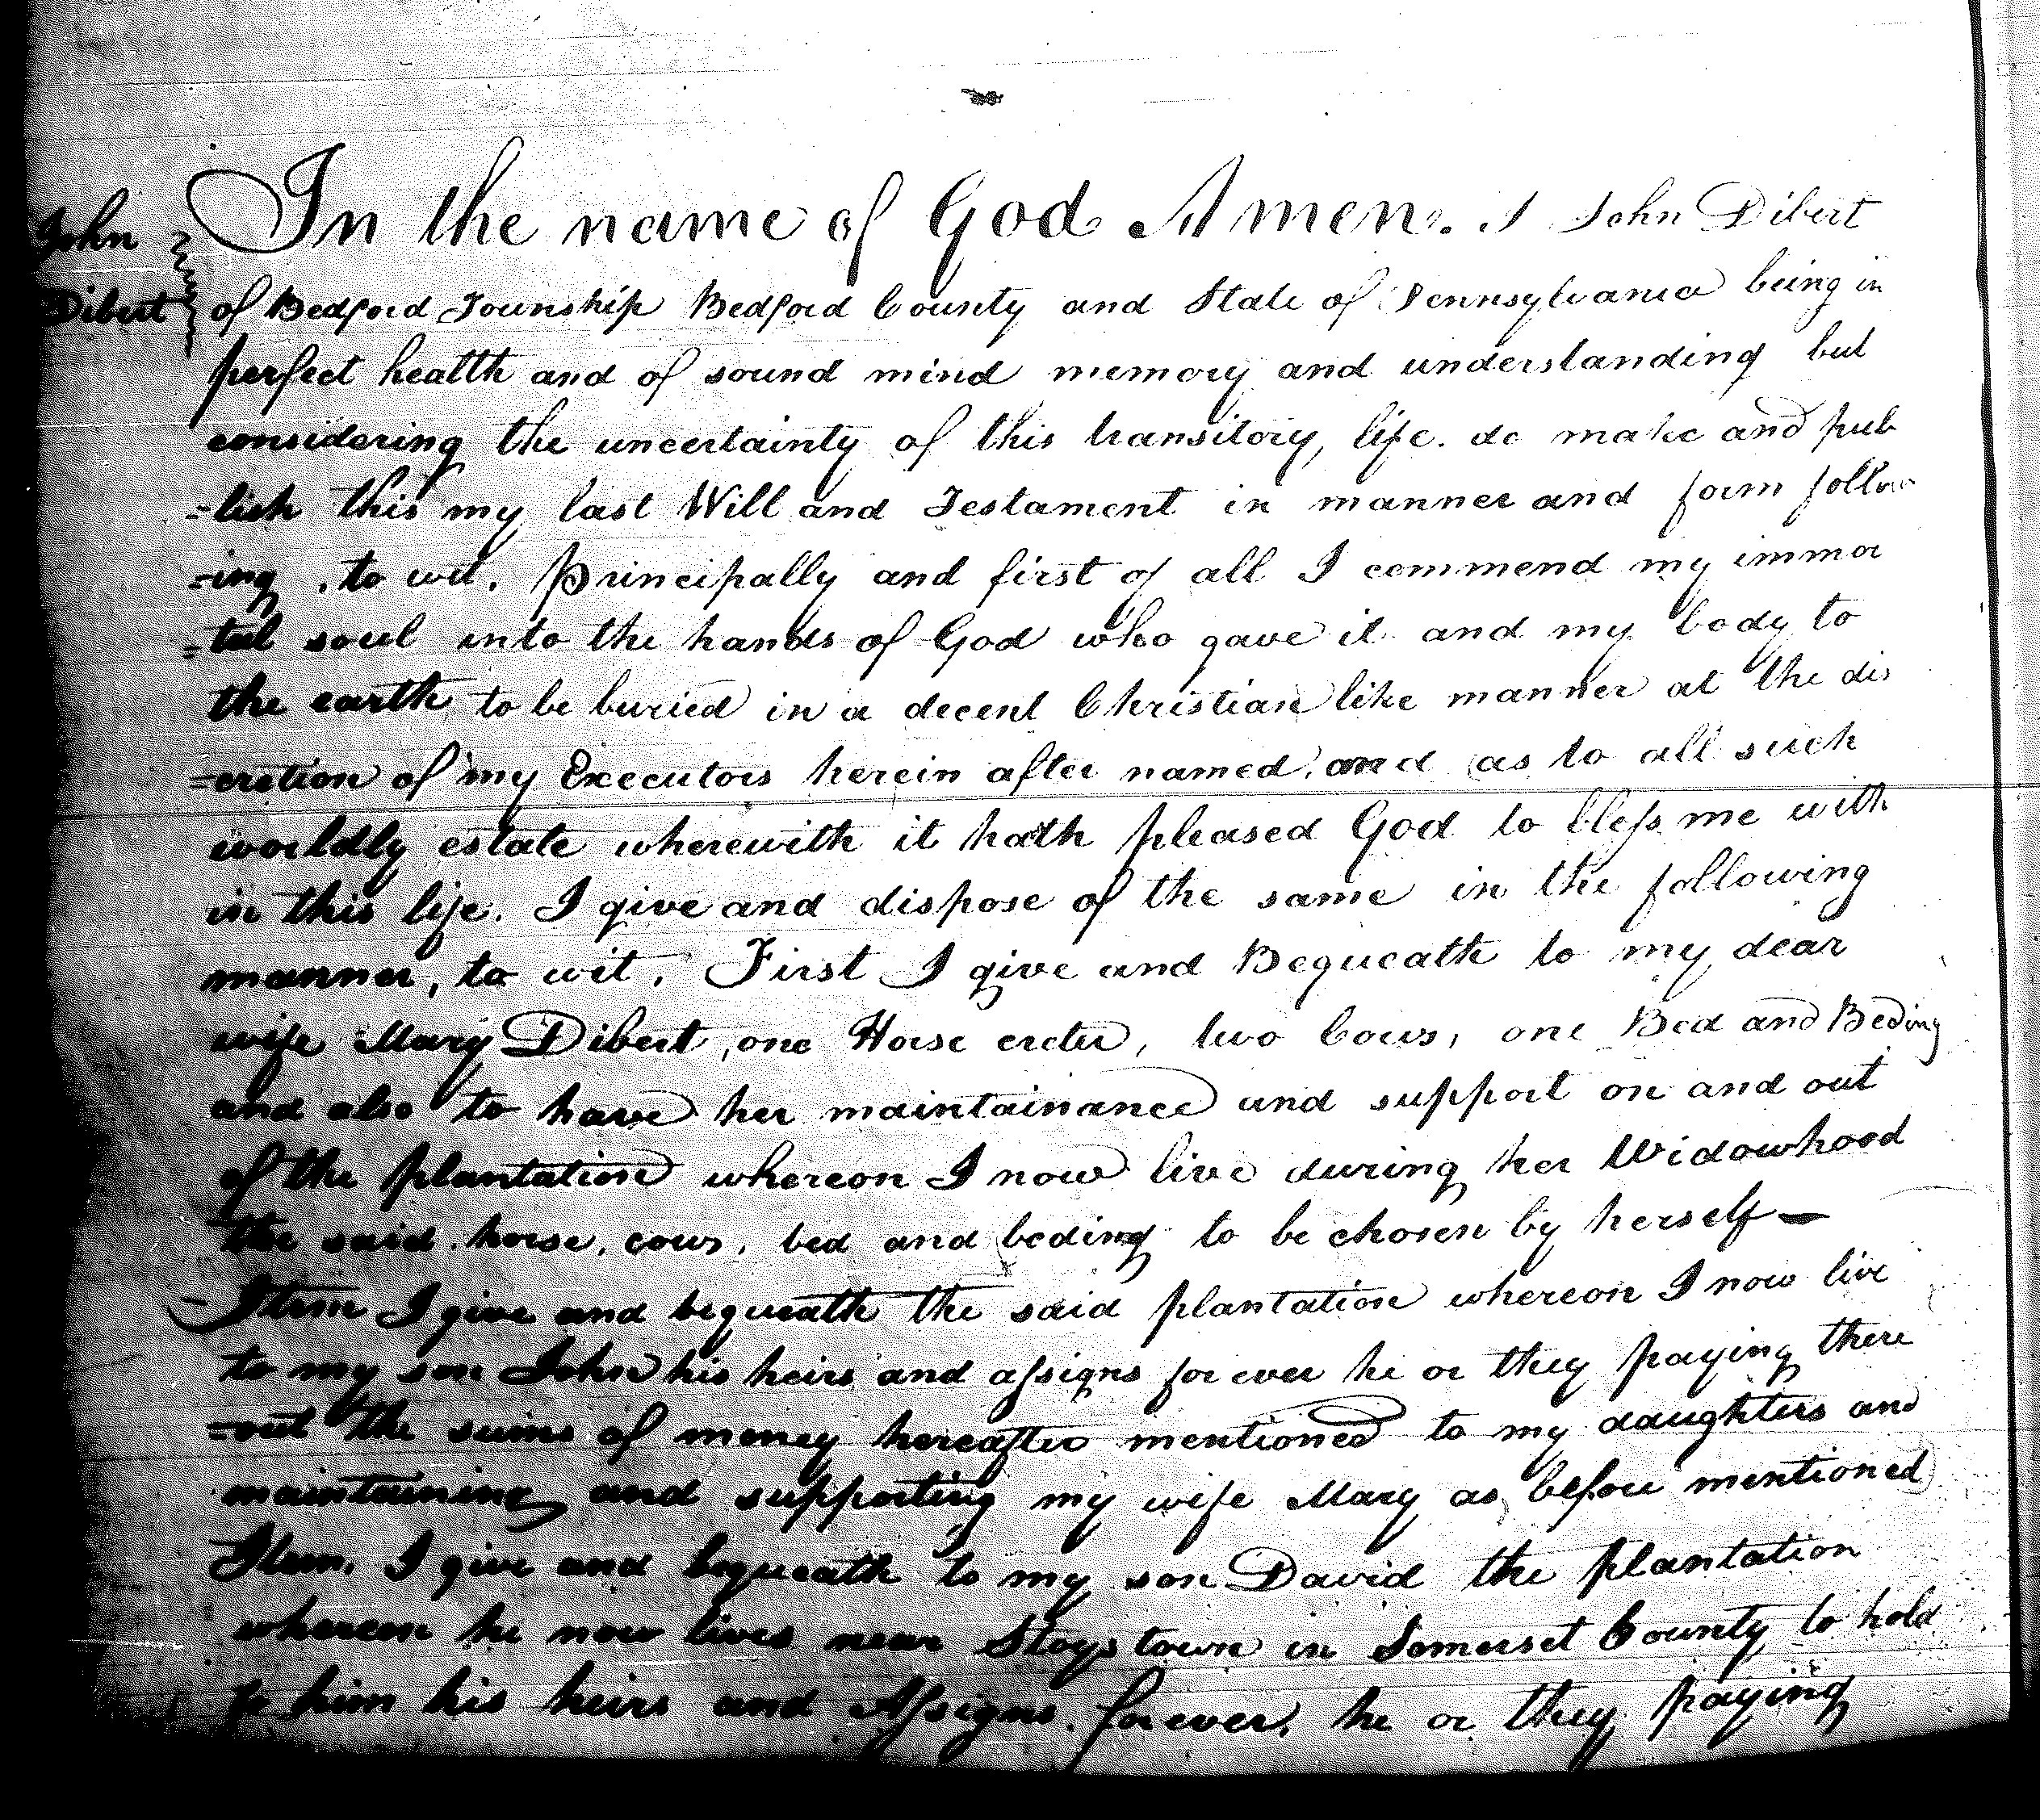 John
Dibert
In the name of God Amen. I John Dibert
of Bedford Township Bedford County and State of Pennsylvania being in
perfect health and of sound mind memory and understanding but
considering the uncertainty of this transitory, life. do make and pub
=lish this my last Will and Testament in manner and form follow
=ing , to wit. Principally and first of all I commend my immor
=tal soul into the hands of God who gave it and my body to
the earth to be buried in a decent Christian like manner at the dis
=cretion of my Executors herein after named, and as to all such
worldly estate wherewith it hath pleased God to bless me with
in this life. I give and dispose of the same in the following
manner, to wit, First I give and Bequeath to my dear
wife Mary Dibert, one Horse creter, two Cows, one Bed and Beding
and also to have her maintainance and support on and out
of the plantation whereon I now live during her Widowhood
the said horse, cows, bed and beding to be chosen by herself —
- Item I give and bequeath the said plantation whereon I now live
to my son John his heirs and assigns for ever he or they paying there
=out the sums of money hereafter mentioned to my daughters and
maintaining and supporting my wife Mary as before mentioned
Item. I give and bequeath to my son David the plantation
whereon he now lives near Stoystown in Somerset County to hold
to him his heirs and Assigns forever, he or they paying